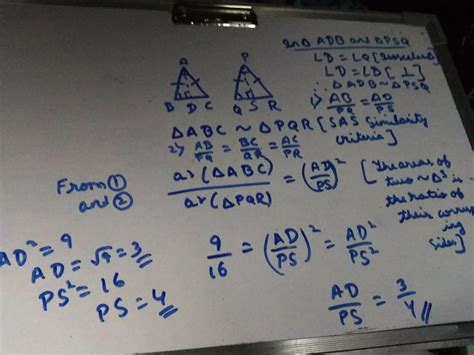 A
P
B D C
Q S R
In Δ ADB and ΔPSQ
LD = LQ [Isosceles Δ]
LD = LD [⊥]
Δ ADB ~ Δ PSQ
⇒ AB/PQ = AD/PS
ΔABC ~ ΔPQR [SAS Similarity criteria]
⇒ AD/PQ = BC/QR = AC/PR
ar (ΔABC)/ar (ΔPQR) = (AD/PS)²
[The areas of
two ~ Δˢ is
the ratio of
their corresponding
sides.]
From ①
and ②
AD² = 9
AD = √9 = 3
PS² = 16
PS = 4
9/16 = (AD/PS)² = AD²/PS²
AD/PS = 3/4